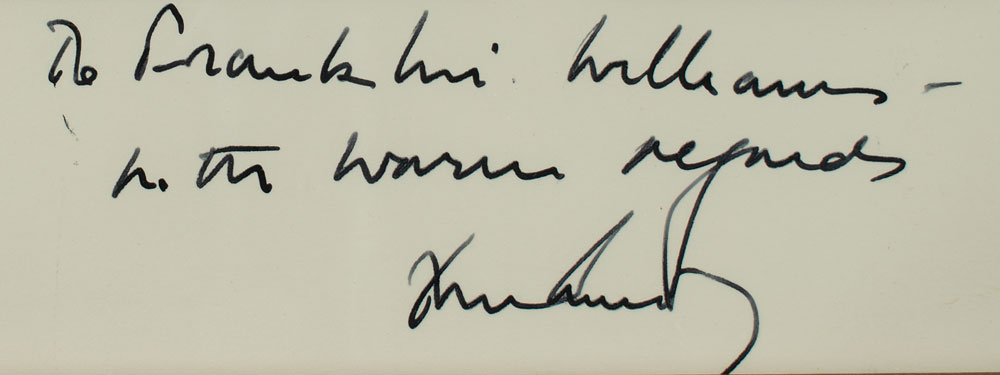 To Franklin Williams –
with warm regards